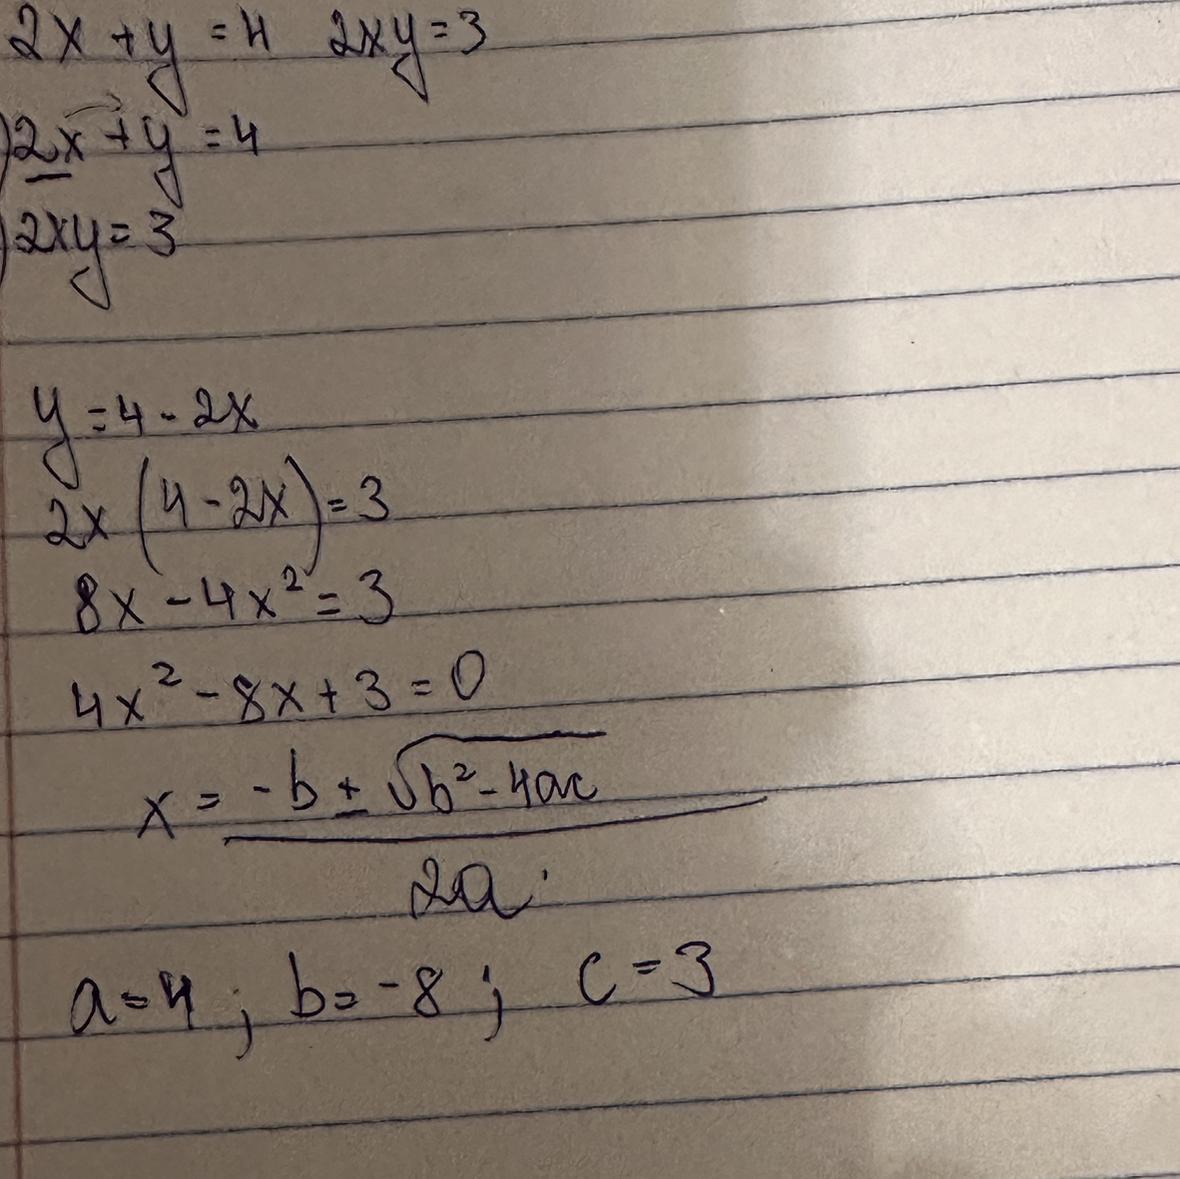 2x + y = 4 2xy = 3
2x + y = 4
2xy = 3
y = 4 - 2x
2x (4 - 2x) = 3
8x - 4x² = 3
4x² - 8x + 3 = 0
x = -b ± √b² - 4ac
2a
a = 4 ; b = -8 ; c = 3